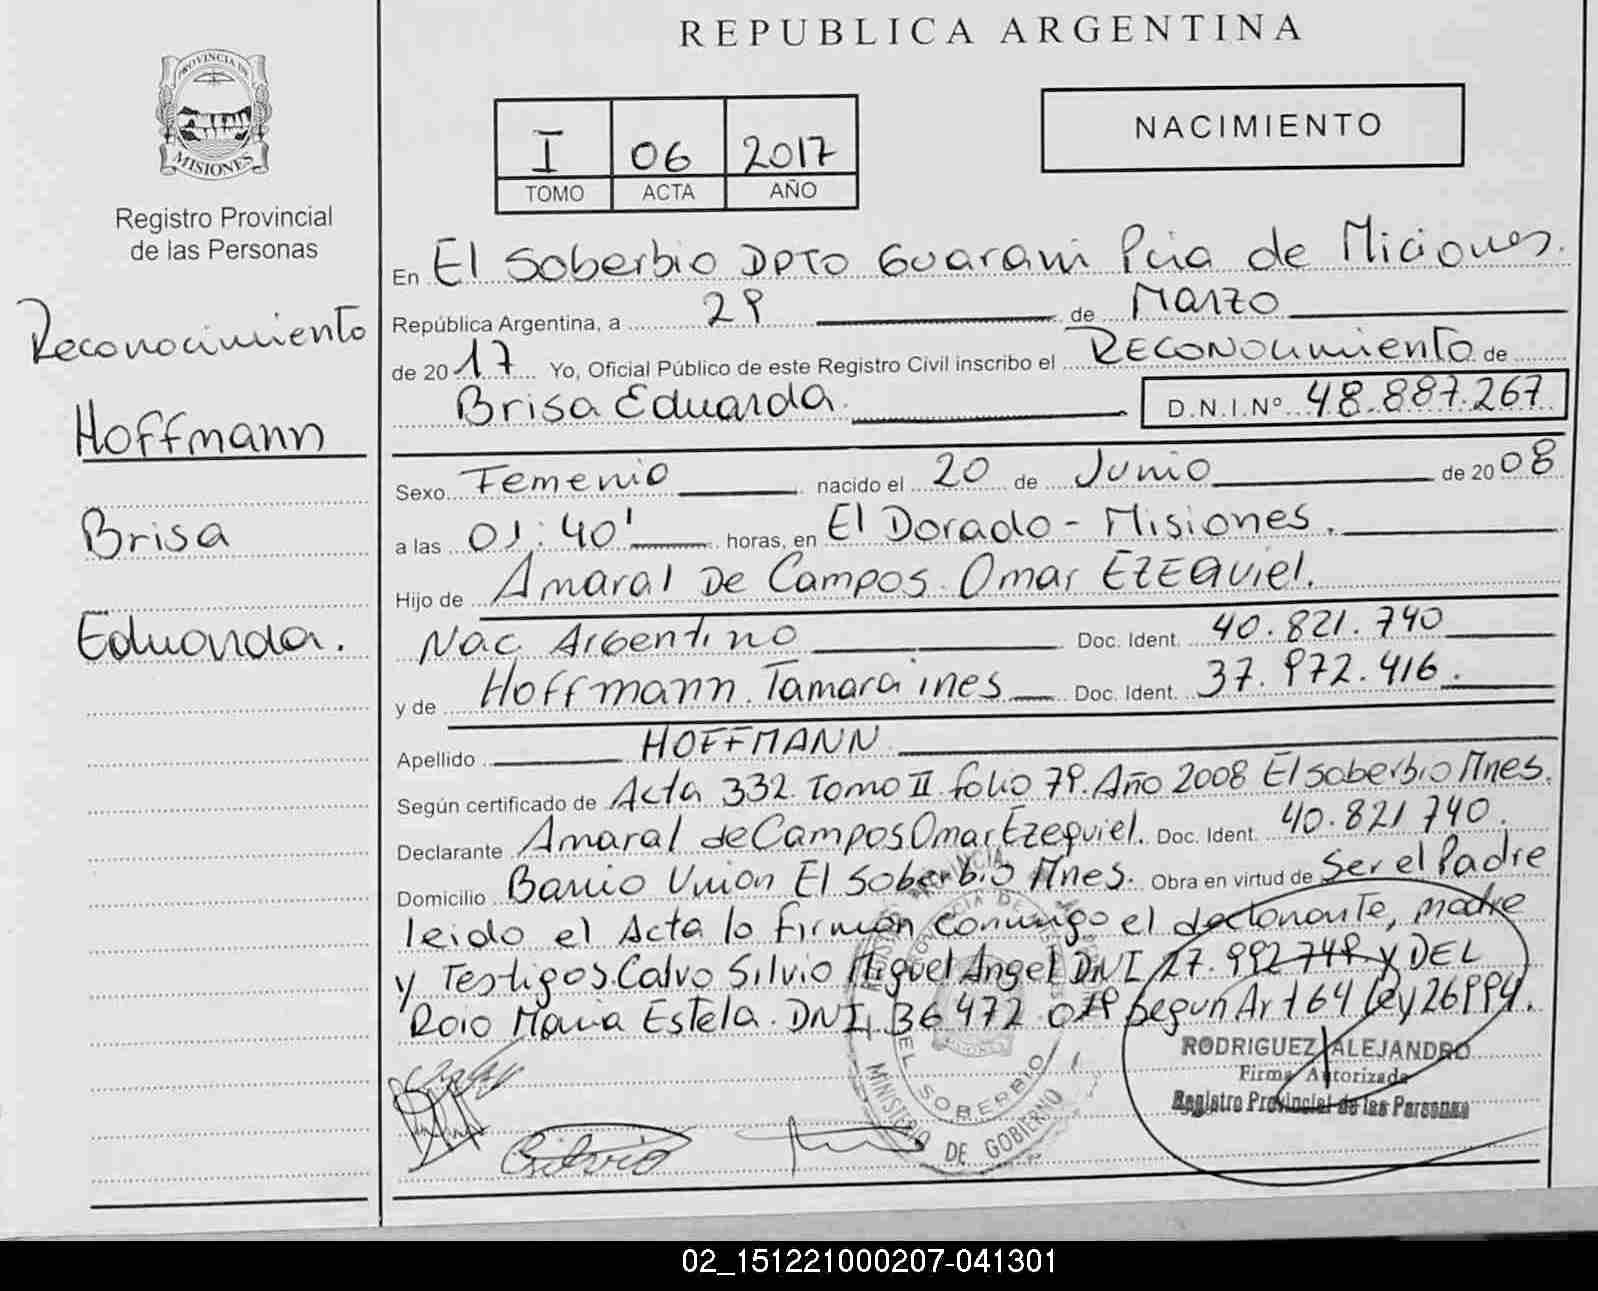 REPUBLICA ARGENTINA
PROVINCIA DE
MISIONES
Registro Provincial
de las Personas
I 06 2017
TOMO ACTA AÑO
NACIMIENTO
Reconocimiento
Hoffmann
Brisa
Eduarda.
En El Soberbio Dpto Guarani Pcia de Miciones.
República Argentina, a 29 de Marzo
de 2017 Yo, Oficial Público de este Registro Civil inscribo el RECONOCimiento de
Brisa Eduarda. D.N.I.Nº 48.887.267
Sexo Femenio nacido el 20 de Junio de 2008
a las 01:40' horas, en El Dorado - Misiones.
Hijo de Amaral De Campos. Omar EZEQuiel.
Nac Argentino Doc. Ident. 40.821.740
y de Hoffmann. Tamara ines Doc. Ident. 37.972.416.
Apellido HOFFMANN
Según certificado de Acta 332. Tomo II folio 79. Año 2008 El soberbio Mnes.
Declarante Amaral de Campos Omar Ezequiel. Doc. Ident. 40.821 740.
Domicilio Barrio Union El Soberbio Mnes. Obra en virtud de Ser el Padre
leido el Acta lo firman conmigo el declarante, madre
y Testigos. Calvo Silvio Miguel Angel DNI 27.992 749 y DEL
Roio Maria Estela. DNI, 36 472 079 Segun Art 64 Ley 26994.
RODRIGUEZ ALEJANDRO
Firma Autorizada
Registro Provincial de las Personas
EL SOBERBIO
MINISTERIO DE GOBIERNO
Silvio
02_151221000207-041301